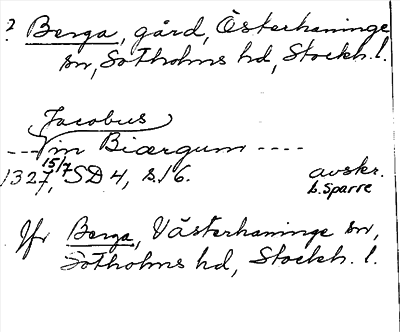 ? Berga, gård, Österhaninge
sn, Sotholms hd, Stockh. l.
Jacobus
---- in Biærgum ----
1327 15/7, SD 4, s. 16. avskr.
b. Sparre
Jfr Berga, Västerhaninge sn,
Sotholms hd, Stockh. l.